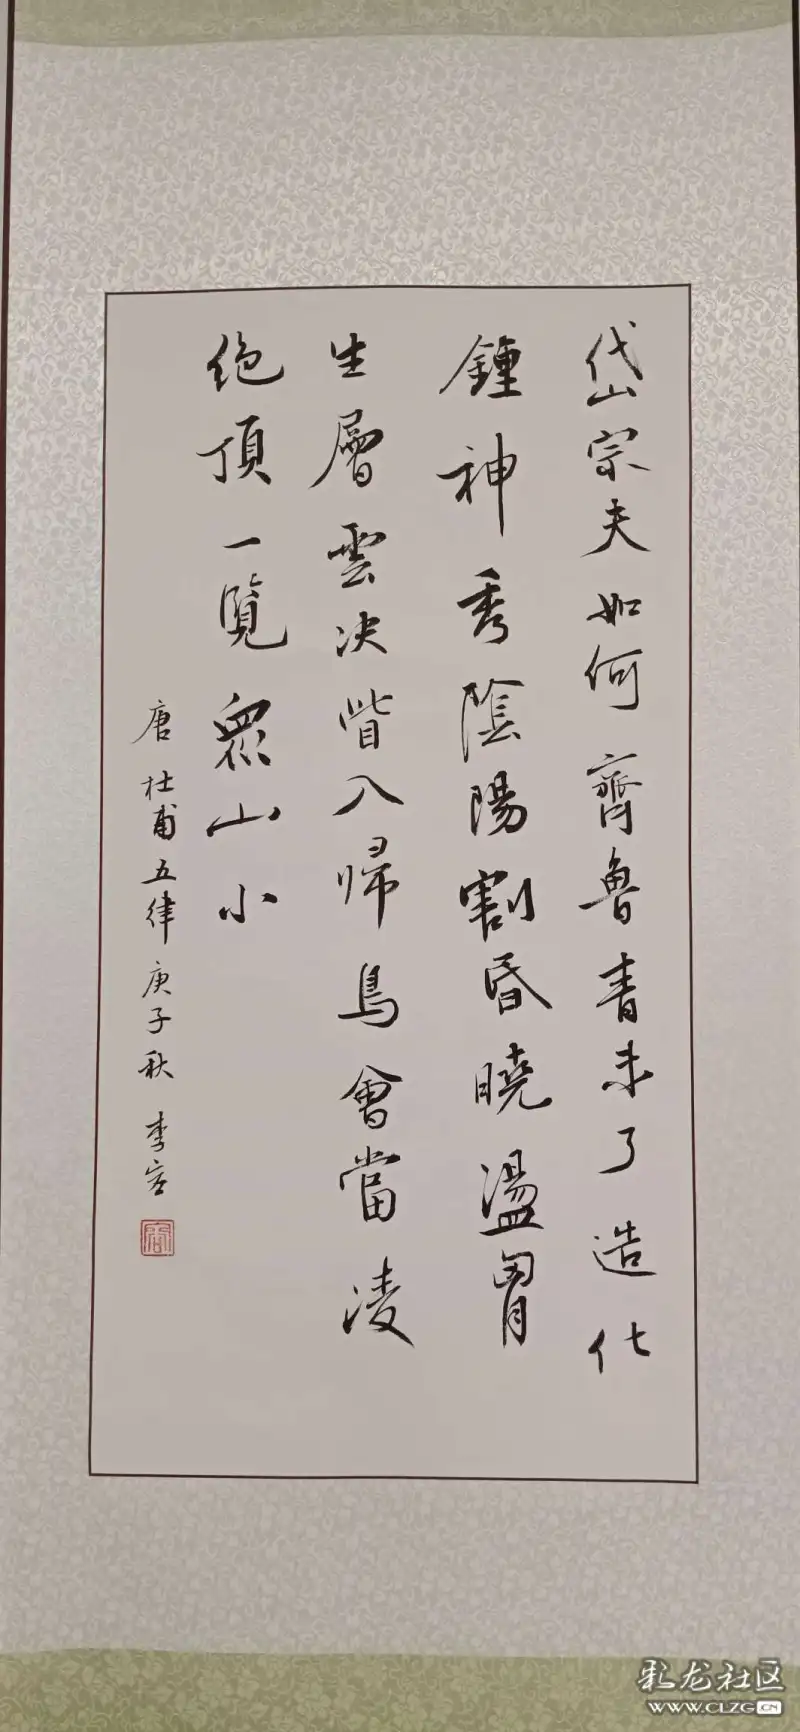 岱宗夫如何齊魯青未了造化
鍾神秀陰陽割昏曉盪胃
生層雲决眥入歸鳥會當凌
绝頂一覽眾山小
唐杜甫五律庚子秋李
彩龙社区
WWW.CLZG.CN